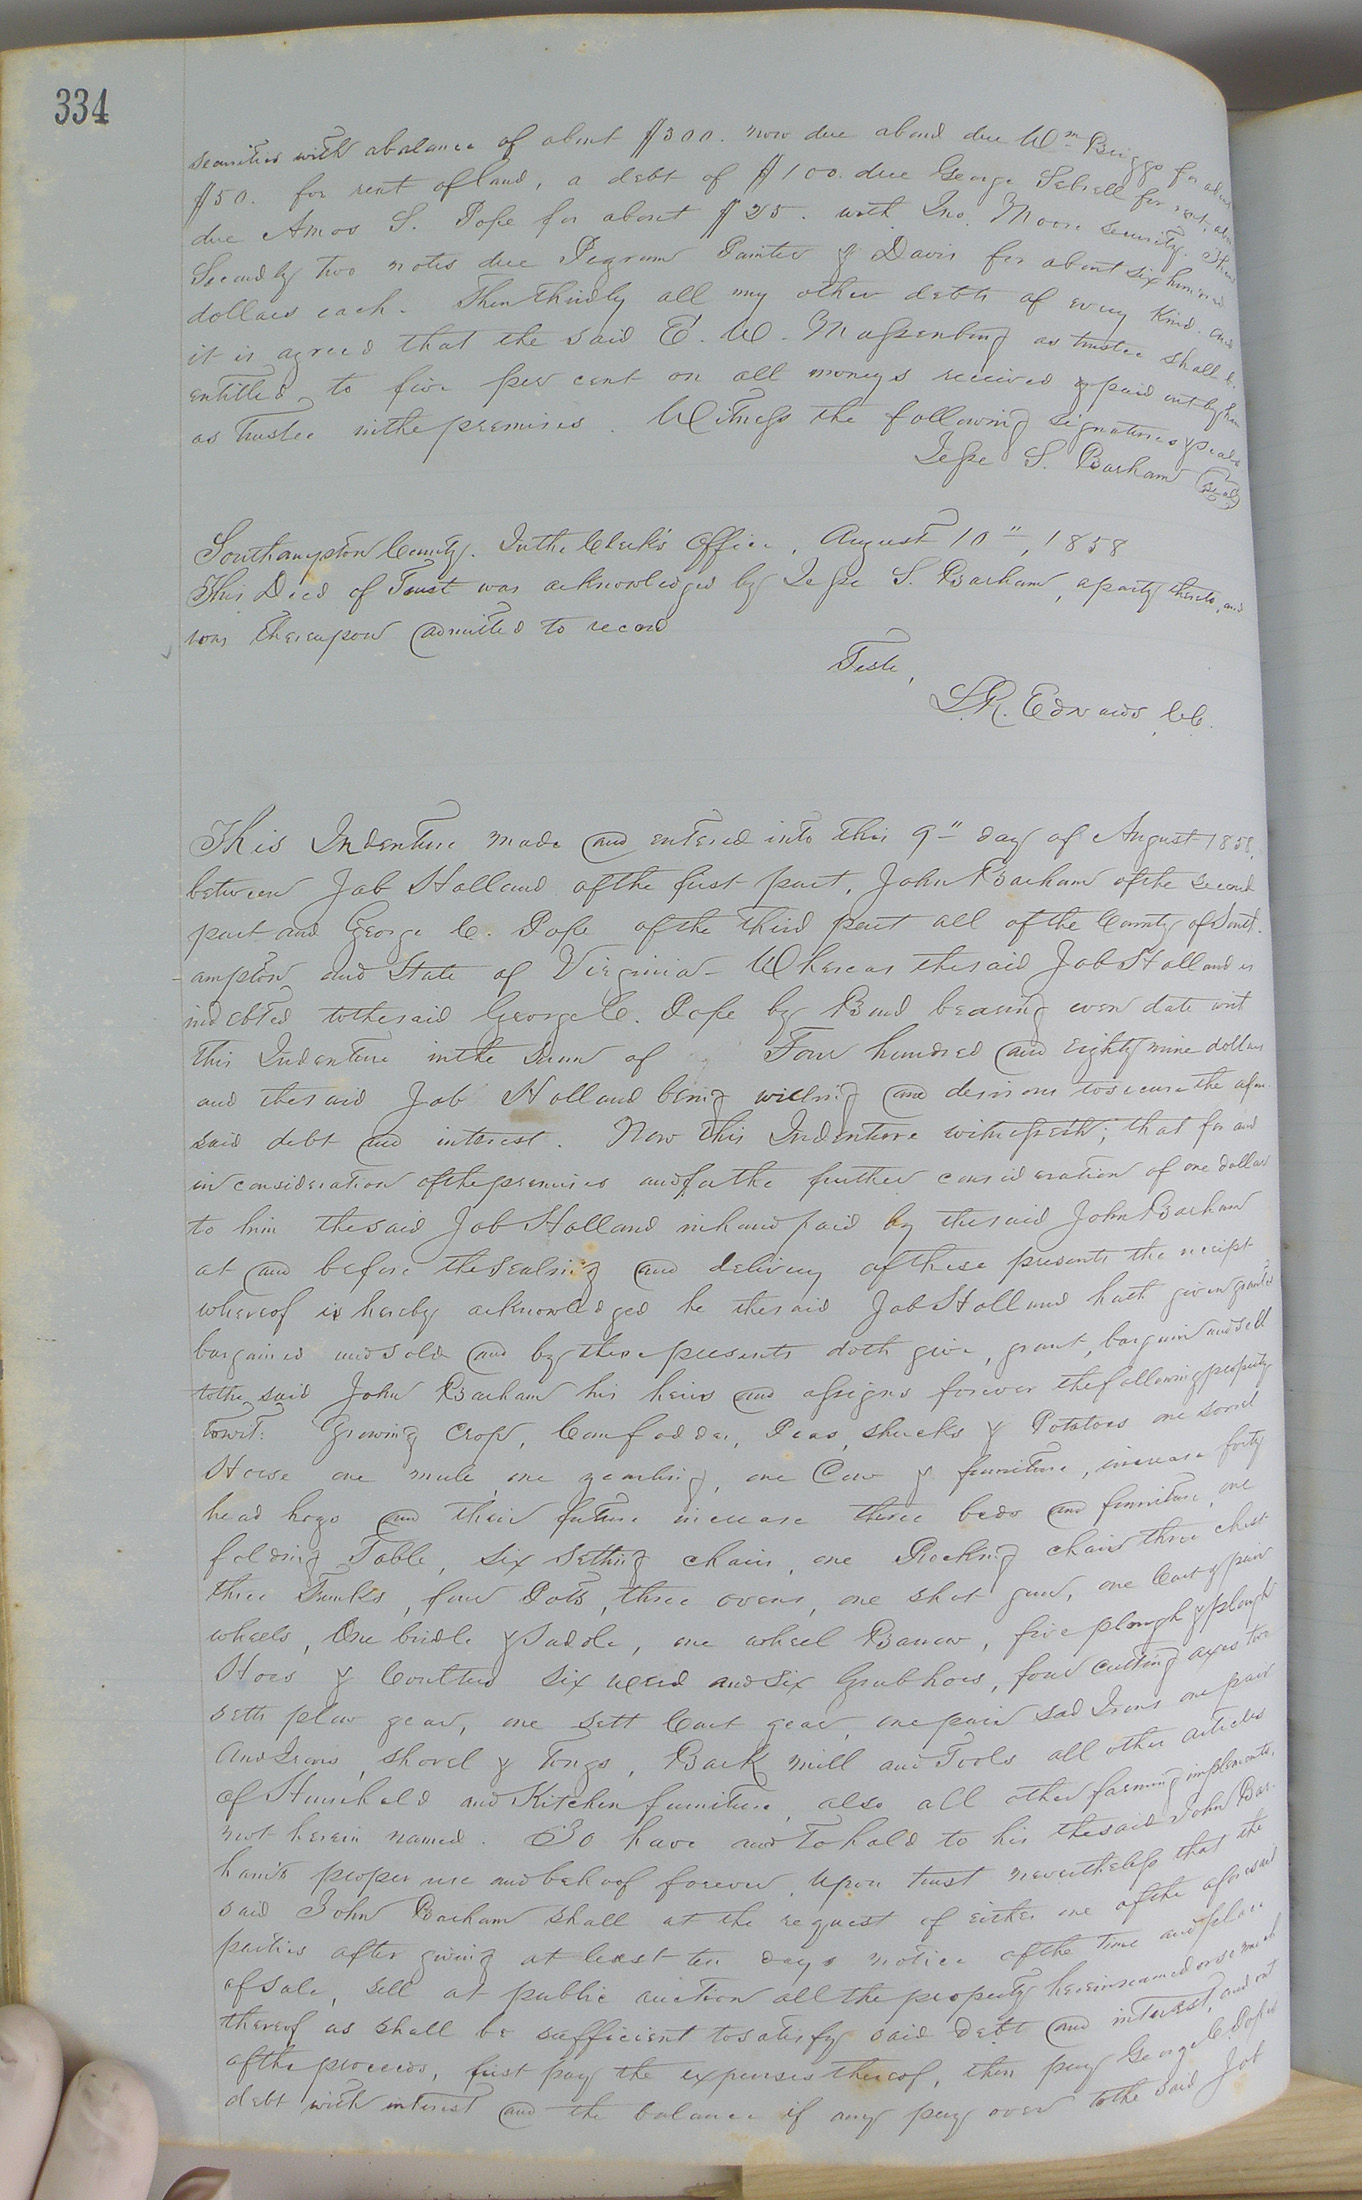 334
securities with a balance of about $300. now due a bond due Wm Briggs for about
$50. for rent of land, a debt of $100. due George Sebrell for rent, also
due Amos S. Pope for about $25. with Jno. Moore security. Then
Secondly two notes due Pegram Painter & Davis for about six hundred
dollars each. Then thirdly all my other debts of every kind. and
it is agreed that the said E. W. Massenburg as trustee shall be
entitled to five per cent on all moneys received & paid out by him
as trustee in the premises. Witness the following signatures & seals
Jesse S. Barham (Seal)
Southampton County. In the Clerk's Office, August 10", 1858
This Deed of Trust was acknowledged by Jesse S. Barham, a party thereto, and
was thereupon admitted to record
Teste,
L.R. Edwards, C.C.
This Indenture made and entered into this 9" day of August 1858,
between Job Holland of the first part, John Barham of the second
part and George C. Pope of the third part all of the County of South-
ampton and State of Virginia - Whereas the said Job Holland is
indebted to the said George C. Pope by Bond bearing even date with
this Indenture in the Sum of Four hundred and Eighty nine dollars
and the said Job Holland being willing and desirous to secure the afore-
said debt and interest. Now this Indenture witnesseth; that for and
in consideration of the premises and for the further consideration of one dollar
to him the said Job Holland in hand paid by the said John Barham
at and before the sealing and delivery of these presents the receipt
whereof is hereby acknowledged he the said Job Holland hath given granted
bargained and sold and by these presents doth give, grant, bargain and sell
to the said John Barham his heirs and assigns forever the following property
Towit: Growing Crop, Corn fodder, Peas, shucks & Potatoes one sorrel
Horse one mule, one yearling, one Cow & furniture, increase forty
head hogs and their future increase three beds and furniture, one
folding Table, six setting chairs, one Rocking chair three chest
three Trunks, four Pots, three ovens, one shot gun, one Cart & pair
wheels, One bridle & Saddle, one wheel Barrow, five plough & plough
Hoes & Coulters six weed and six Grub hoes, four cutting axes two
setts plow gear, one sett Cart gear, one pair Sad Irons one pair
And Irons, shovel & Tongs, Bark mill and Tools all other articles
of Household and Kitchen furniture, also all other farming implements,
not herein named. To have and To hold to his the said John Bar-
ham's proper use and behoof forever. Upon trust nevertheless that the
said John Barham shall at the request of either one of the aforesaid
parties after giving at least ten days notice of the time and place
of sale, sell at public auction all the property herein named or so much
thereof as shall be sufficient to satisfy said debt and interest, and out
of the proceeds, first pay the expenses thereof, then pay George C. Popes
debt with interest and the balance if any pay over to the said Job